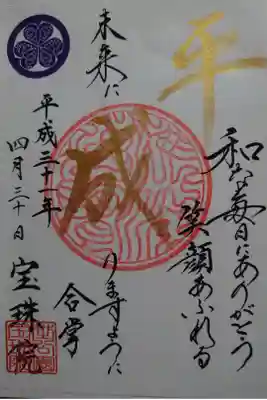 平成
和な毎日にありがとう
笑顔あふれる
未来に
なりますように
合掌
平成三十一年
四月三十日
宝珠院